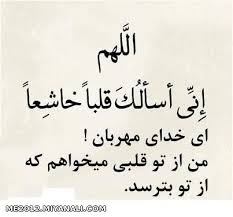 اللَّهم
إِنِّى أسألُكَ قلباً خاشِعاً
ای خدای مهربان !
من از تو قلبی میخواهم که
از تو بترسد.
ME2012.MIYANALI.COM